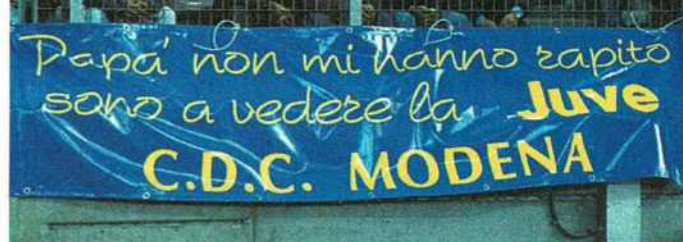 Papá non mi hanno rapito
sono a vedere la Juve
C.D.C. MODENA